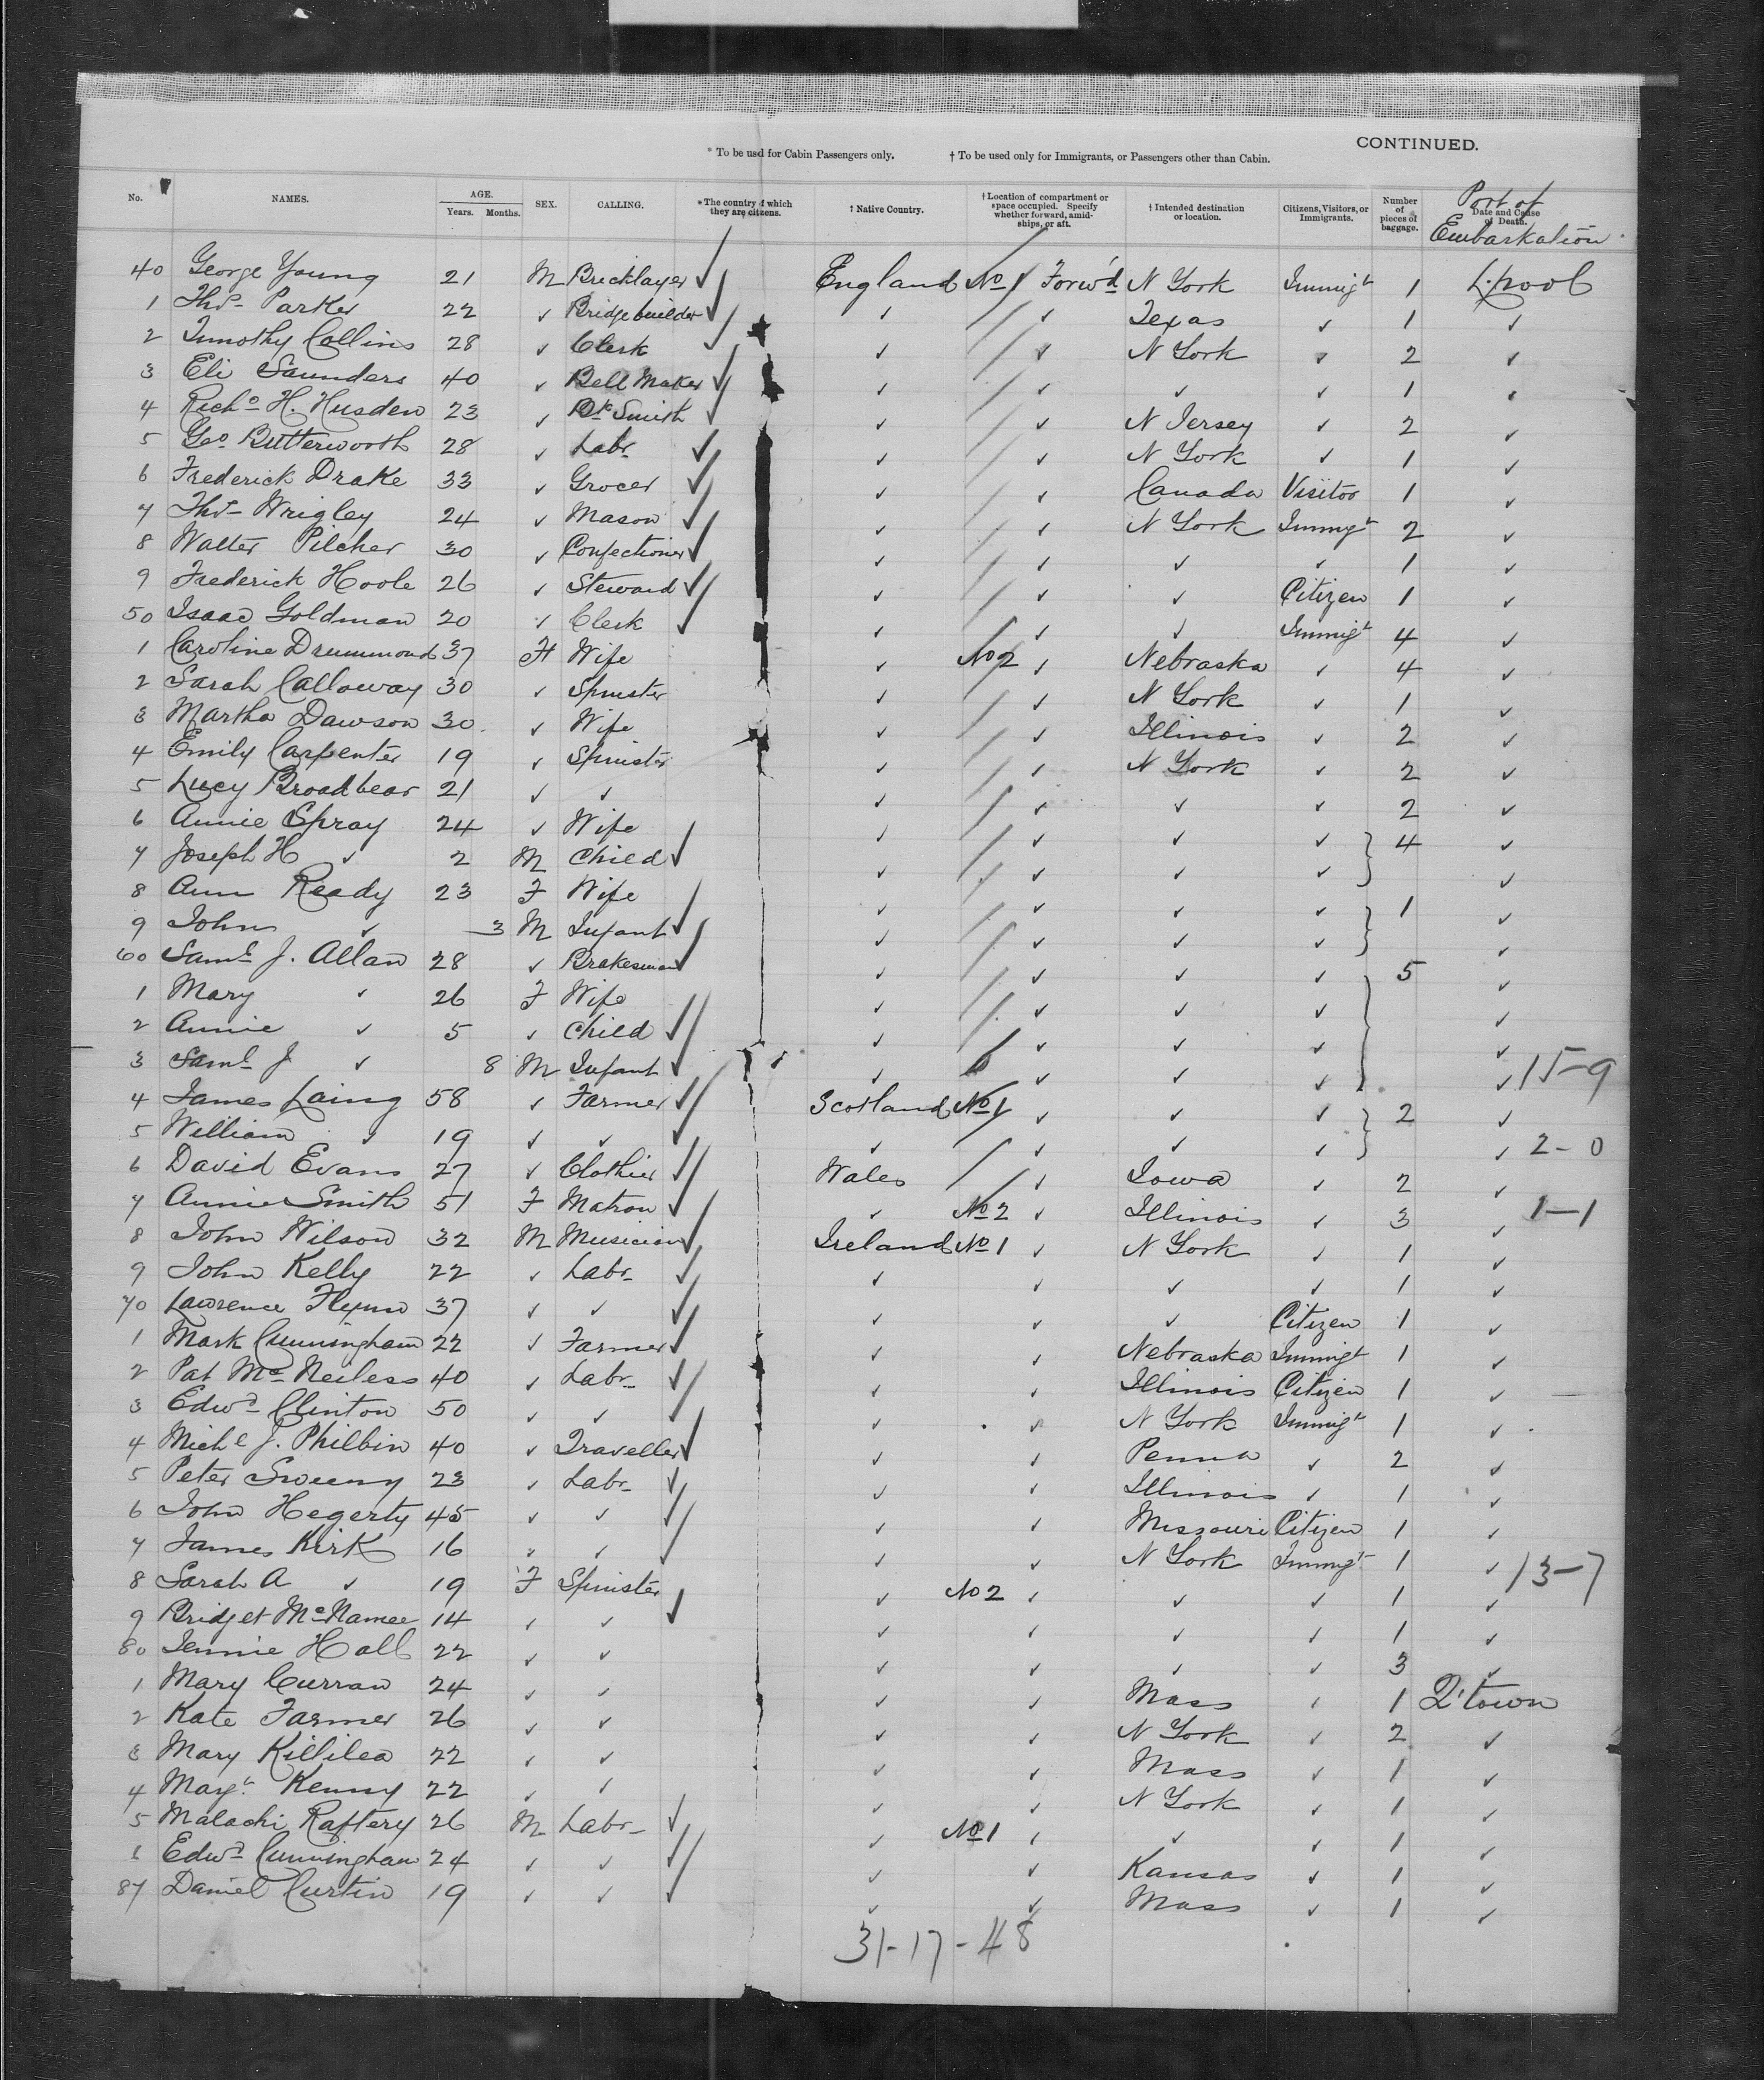 CONTINUED.
* To be used for Cabin Passengers only. † To be used only for Immigrants, or Passengers other than Cabin.
No. NAMES. AGE. Years. Months. SEX. CALLING. * The country of which they are citizens. † Native Country. † Location of compartment or space occupied. Specify whether forward, amidships, or aft. † Intended destination or location. Citizens, Visitors, or Immigrants. Number of pieces of baggage. Date and Cause of Death. Port of Embarkation
40 George Young 21 M Bricklayer England No 1 Forw'd N York Immigt 1 L'pool
1 Thos Parker 22 ✓ Bridgebuilder ✓ ✓ Texas ✓ 1 ✓
2 Timothy Collins 28 ✓ Clerk ✓ ✓ N York ✓ 2 ✓
3 Eli Saunders 40 ✓ Bell Maker ✓ ✓ ✓ ✓ 1 ✓
4 Richd H. Husden 23 ✓ Bk Smith ✓ ✓ N Jersey ✓ 2 ✓
5 Geo Butterworth 28 ✓ Labr ✓ ✓ N York ✓ 1 ✓
6 Frederick Drake 33 ✓ Grocer ✓ ✓ Canada Visitor 1 ✓
7 Thos Wrigley 24 ✓ Mason ✓ ✓ N York Immigt 2 ✓
8 Walter Pilcher 30 ✓ Confectioner ✓ ✓ ✓ ✓ 1 ✓
9 Frederick Hoole 26 ✓ Steward ✓ ✓ ✓ Citizen 1 ✓
50 Isaac Goldman 20 ✓ Clerk ✓ ✓ ✓ Immigt 4 ✓
1 Caroline Drummond 37 F Wife ✓ No 2 ✓ Nebraska ✓ 4 ✓
2 Sarah Calloway 30 ✓ Spinster ✓ ✓ N York ✓ 1 ✓
3 Martha Dawson 30 ✓ Wife ✓ ✓ Illinois ✓ 2 ✓
4 Emily Carpenter 19 ✓ Spinster ✓ ✓ N York ✓ 2 ✓
5 Lucy Broadbear 21 ✓ ✓ ✓ ✓ ✓ ✓ 2 ✓
6 Annie Spray 24 ✓ Wife ✓ ✓ ✓ ✓ 4 ✓
7 Joseph H ✓ 2 M Child ✓ ✓ ✓ ✓ ✓
8 Ann Ready 23 F Wife ✓ ✓ ✓ ✓ 1 ✓
9 John ✓ 3 M Infant ✓ ✓ ✓ ✓ ✓
60 Saml J. Allan 28 ✓ Brakesman ✓ ✓ ✓ ✓ 5 ✓
1 Mary ✓ 26 F Wife ✓ ✓ ✓ ✓ ✓
2 Annie ✓ 5 ✓ Child ✓ ✓ ✓ ✓ ✓
3 Saml J ✓ 8 M Infant ✓ ✓ ✓ ✓ ✓ 15-9
4 James Laing 58 ✓ Farmer Scotland No 1 ✓ ✓ ✓ 2 ✓
5 William ✓ 19 ✓ ✓ ✓ ✓ ✓ ✓ ✓ 2-0
6 David Evans 27 ✓ Clothier Wales ✓ Iowa ✓ 2 ✓
7 Annie Smith 51 F Matron ✓ No 2 ✓ Illinois ✓ 3 ✓ 1-1
8 John Wilson 32 M Musician Ireland No 1 ✓ N York ✓ 1 ✓
9 John Kelly 22 ✓ Labr ✓ ✓ ✓ ✓ 1 ✓
70 Lawrence Flynn 37 ✓ ✓ ✓ ✓ ✓ Citizen 1 ✓
1 Mark Cunningham 22 ✓ Farmer ✓ ✓ Nebraska Immigt 1 ✓
2 Pat Mc Neiless 40 ✓ Labr ✓ ✓ Illinois Citizen 1 ✓
3 Edwd Clinton 50 ✓ ✓ ✓ ✓ N York Immigt 1 ✓
4 Michl J. Philbin 40 ✓ Traveller ✓ ✓ Penna ✓ 2 ✓
5 Peter Sweeny 23 ✓ Labr ✓ ✓ Illinois ✓ 1 ✓
6 John Hegerty 45 ✓ ✓ ✓ ✓ Missouri Citizen 1 ✓
7 James Kirk 16 ✓ ✓ ✓ ✓ N York Immigt 1 ✓ 13-7
8 Sarah A ✓ 19 F Spinster ✓ No 2 ✓ ✓ ✓ 1 ✓
9 Bridget McNamee 14 ✓ ✓ ✓ ✓ ✓ ✓ 1 ✓
80 Jennie Hall 22 ✓ ✓ ✓ ✓ ✓ ✓ 3 ✓
1 Mary Curran 24 ✓ ✓ ✓ ✓ Mass ✓ 1 Q'town
2 Kate Farmer 26 ✓ ✓ ✓ ✓ N York ✓ 2 ✓
3 Mary Killilea 22 ✓ ✓ ✓ ✓ Mass ✓ 1 ✓
4 Margt Kenny 22 ✓ ✓ ✓ ✓ N York ✓ 1 ✓
5 Malachi Raftery 26 M Labr ✓ No 1 ✓ ✓ ✓ 1 ✓
6 Edwd Cunningham 24 ✓ ✓ ✓ ✓ Kansas ✓ 1 ✓
87 Daniel Curtin 19 ✓ ✓ ✓ ✓ Mass ✓ 1 ✓
31-17-48